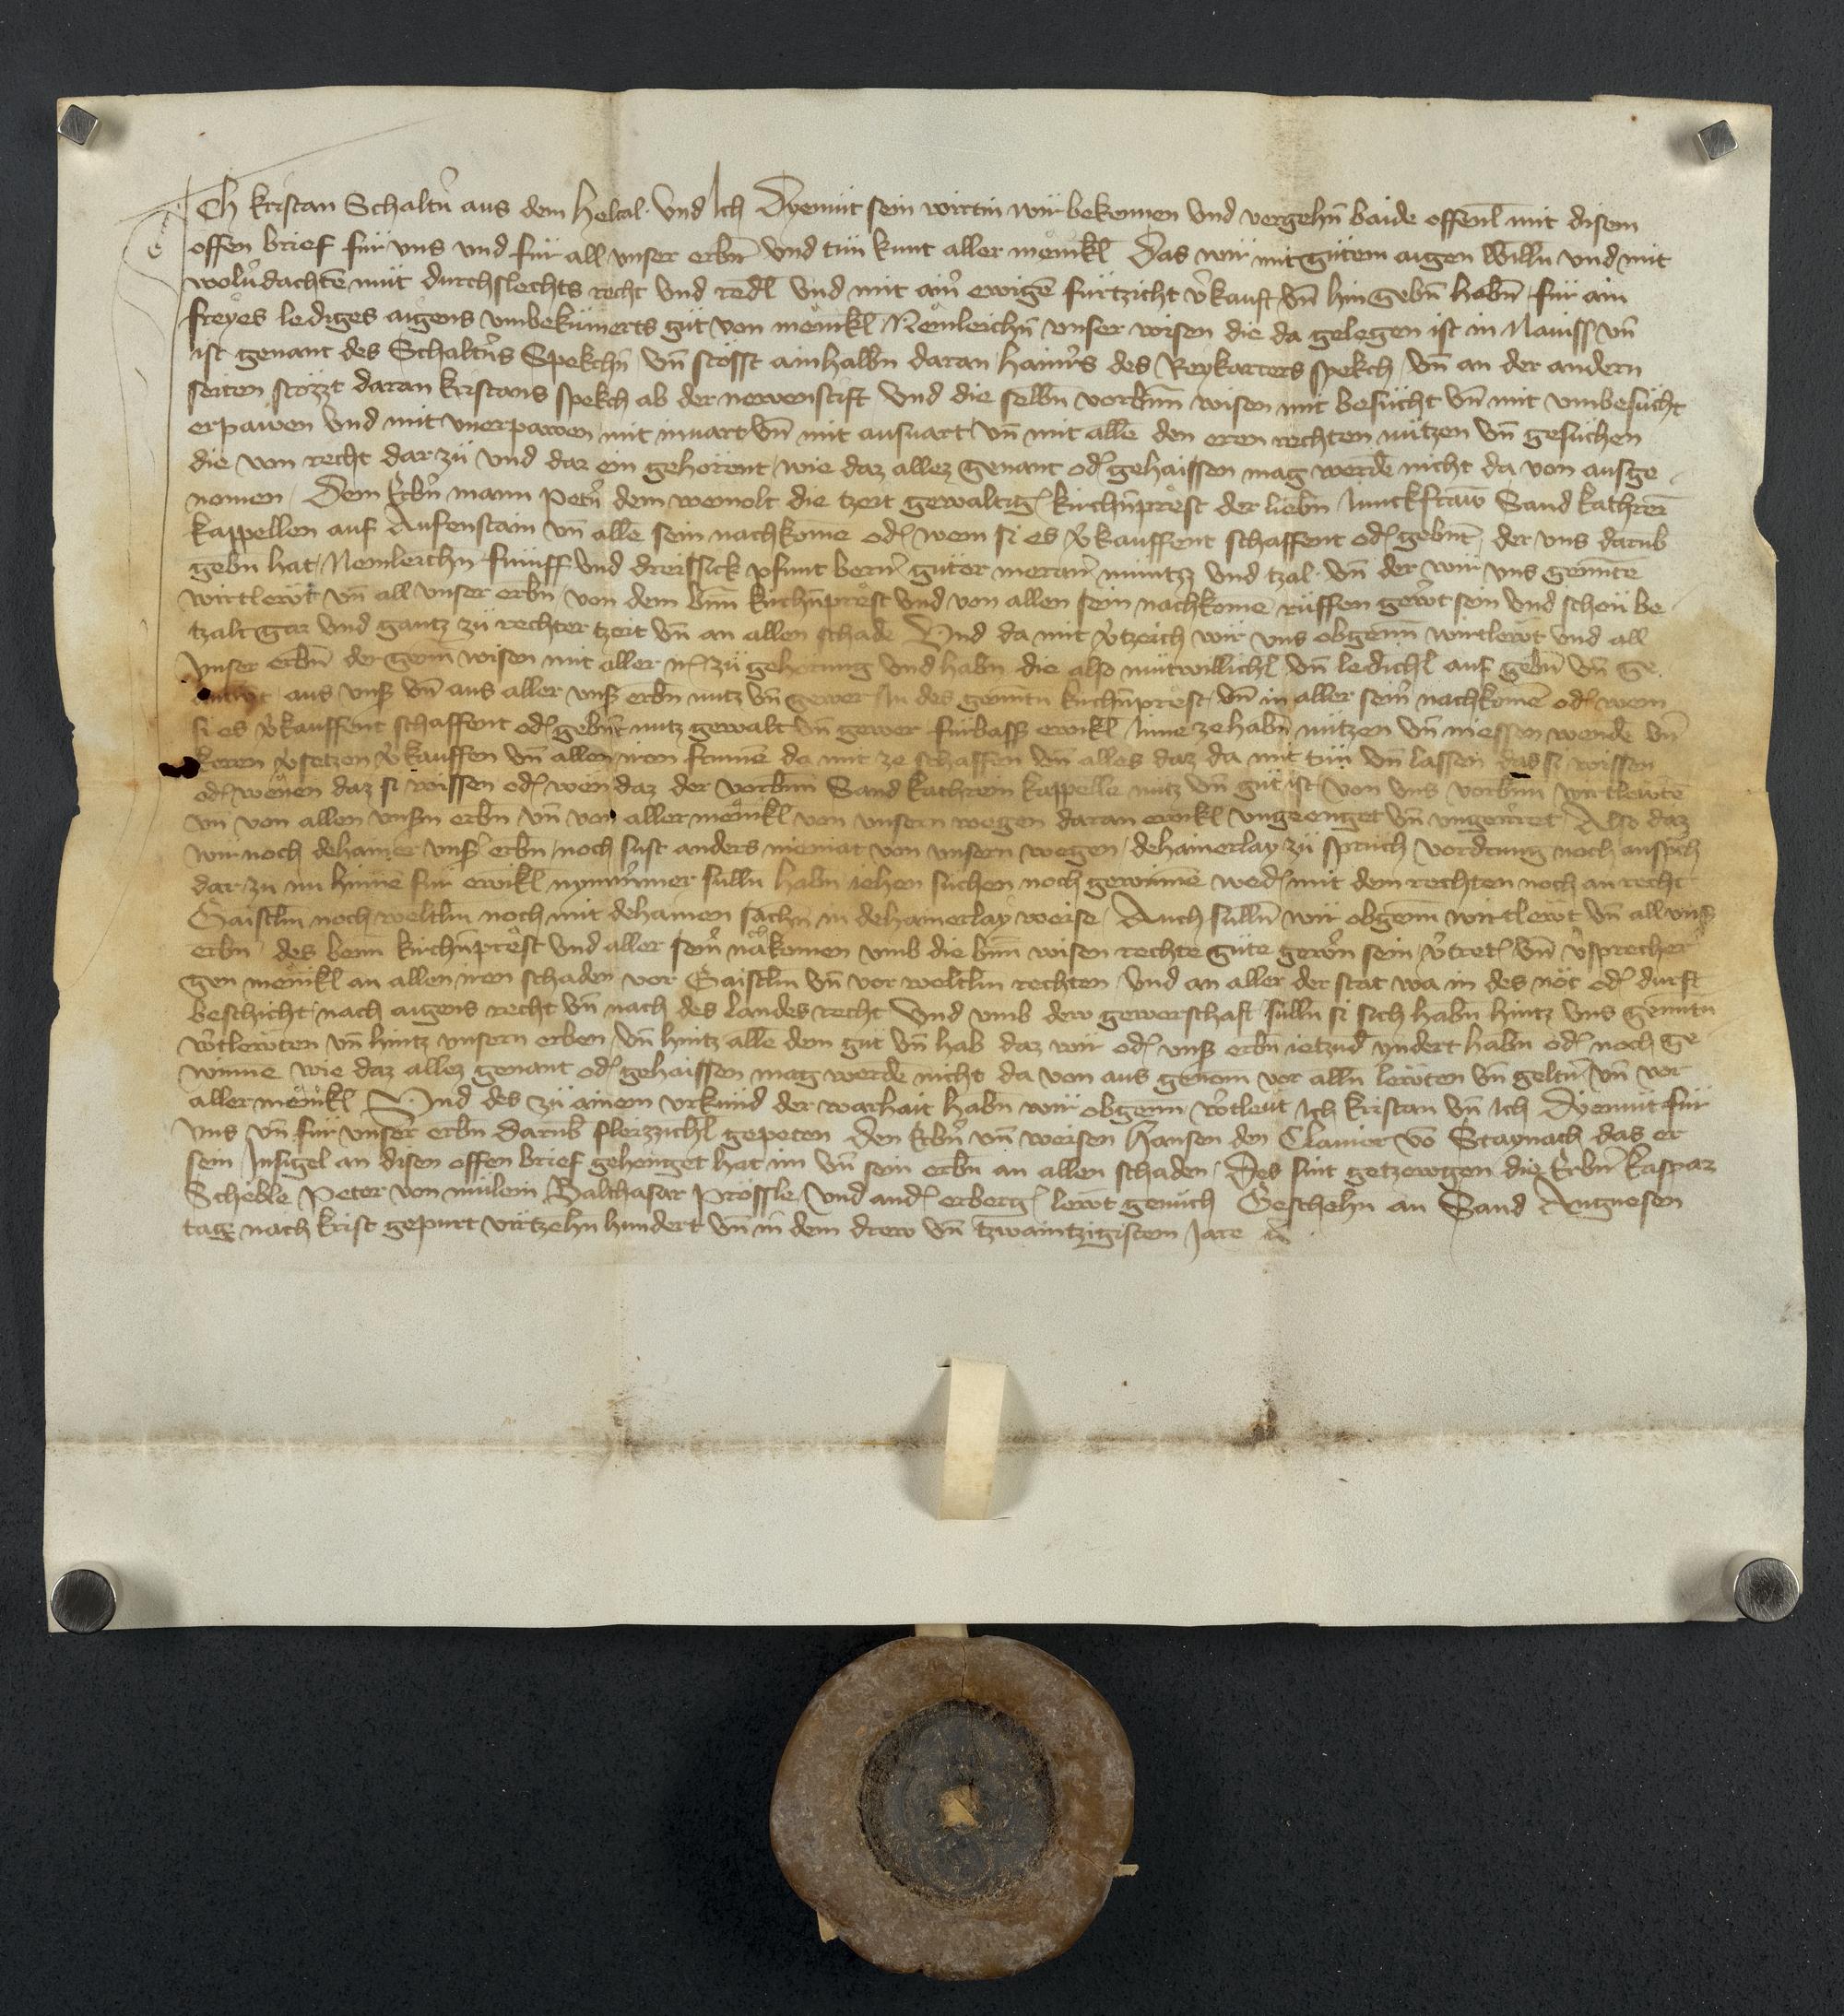 Ich kristan Schaltn̄ aus dem heltal und Ich Dyemüt sein wirtin wir bekennen und vergehn̄ baide offenl̄ mit disem
offen brief für uns und für all unser erbn̄ und tün kunt aller mein̄kl Das wir mit gütem aigen willn̄ und mit
wolu᷑dachtē müt durchslechts recht und redl̄ und mit ain᷑ ewigē fürtzicht v᷑kauft vn̄ hin gebn̄ habn̄ für ain
freyes lediges aigens umbekümerts güt von mein̄kl Nemleichn̄ unser wisen die da gelegen ist in Naviss vn̄
ist genant des Schaltn᷑s Spekchn̄ vn̄ stösst ainhalbn̄ daran hainr᷑s des Reykarters spekch vn̄ an der andern
seiten stözzt daran kristans spekch ab der newenstift und die selbn̄ vorbn̄n̄ wisen mit besücht vn̄ mit umbesücht
erpawen und mit unerpawen mit invart vn̄ mit ausvart vn̄ mit allē den eren rechten nützen vn̄ gesüchen
die von recht dar zü und dar ein gehörent wie daz allez genant od᷑ gehaissen mag werdē nicht da von ausge
nomen Dem Erbn᷑ mann Petn᷑ dem wemolt die tzeit gewaltig᷑ kirchn̄prest der liebn̄ Junckfraw Sand kathrein̄
kappellen auf Aufenstain vn̄ allē sein nachkomē od᷑ wem si es v᷑kauffent schaffent od᷑ gebn̄t der uns darub̄
gebn̄ hat Nemleichn̄ fümff und dreissick pfunt bern᷑ güter meran᷑ müntzz und tzal vn̄ der wir uns genn̄tē
wirtlewt vn̄ all unser erbn̄ von dem bn̄n̄ kirchn̄prest und von allen sein nachkomē rüffen gew᷑t sein und schon be
tzalt gar und gantz zü rechter tzeit vn̄ an allen schadē Und da mit v᷑tzeich wir uns obgenn̄ wirtlewt und all
unser erbn̄ der genn̄ wisen mit aller ir᷑ zü gehorung und habn̄ die also mütwillichl̄ vn̄ ledichl̄ auf gebn̄ vn̄ ge
antwt aus uns᷑ vn̄ aus aller uns᷑ erbn̄ nutz vn̄ gewer In des genn̄tn̄ kirchn̄prest vn̄ in aller sein᷑ nachkomē od᷑ wem
si es v᷑kauffent schaffent od᷑ gebn̄t nutz gewalt vn̄ gewer fürbass ewikl̄ Inne ze habn̄ nützen vn̄ niessen wendē vn̄
keren v᷑setzen v᷑kauffen vn̄ allen iren frumē da mit ze schaffen vn̄ alles daz da mit tün vn̄ lassen das si wissen
od᷑ wenen daz si wissen od᷑ wen daz der vorbn̄n̄ Sand kathrein kappelle nutz vn̄ güt ist von uns vorbn̄n̄ wirtlewtē
vn̄ von allen unsn̄ erbn̄ vn̄ von aller mein̄kl von unsern wegen daran ewikl̄ ungeenget vn̄ ungeirret Also daz
wir noch dehainer uns᷑ erbn̄ noch sust anders niemat von unsern wegen dehainerlay zü sprüch vordrung noch anspch
dar zu nu hinnē für ewikl̄ nym᷑mer sulln̄ habn̄ iehen süchen noch gewinnē wed᷑ mit dem rechten noch an recht
Gaistln̄ noch weltln̄ noch mit dehainen sachn̄ in dehainerlay weise Auch sulln̄ wir obgenn̄ wirtlewt vn̄ all uns᷑
erbn̄ des benn̄ kirchn̄prest und aller sein᷑ nachkomen umb die bn̄n̄ wisen rechte güte gew᷑n sein v᷑tret᷑ vn̄ v᷑sprecher
gen mein̄kl an allen iren schaden vor Gaistln̄ vn̄ vor weltln̄ rechten und an aller der stat wa in des nöt od᷑ durft
beschicht nach aigens recht vn̄ nach des Landes recht Und umb dew gewerschaft sulln̄ si sich habn̄ hintz uns genn̄tn̄
w᷑tlewten vn̄ hintz unsern erben vn̄ hintz allē dem güt vn̄ hab daz wir od᷑ uns᷑ erbn̄ ietzud̄ yndert habn̄ od᷑ noch ge
winnē wie daz allez genant od᷑ gehaissen mag werdē nicht da von aus genom̄ vor alln̄ lewten vn̄ geltn᷑ vn̄ vor
aller mein̄kl Und des zü ainem urkund der warhait habn̄ wir obgenn̄ w᷑tleut Ich kristan vn̄ Ich Dyemüt für
uns vn̄ für unser erbn̄ darub̄ fleizzichl̄ gepeten den Erbn᷑ vn̄ weisen Hansen den Claniör vō Staynach das er
sein Insigel an disen offen brief gehenget hat im vn̄ sein erbn̄ an allen schaden Des sint getzewgen die Erbn᷑ kaspar
Scheble Peter von mülein Balthasar Prössle und and᷑ erberg᷑ lewt genüch Geschehn̄ an Sand Angnesen
tag nach krist gepurt virtzehn̄ hundert vn̄ in dem drew vn̄ tzwaintzigistem Jare